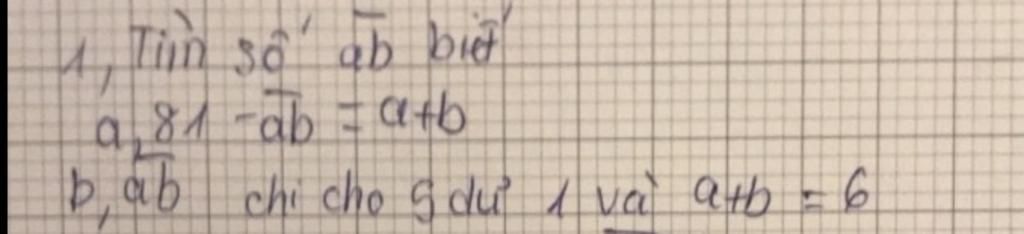 1, Tìm số ab̅ biết
a, 81 - a̅b̅ = a+b
b, a̅b̅ chi cho 5 dư 1 và a+b = 6